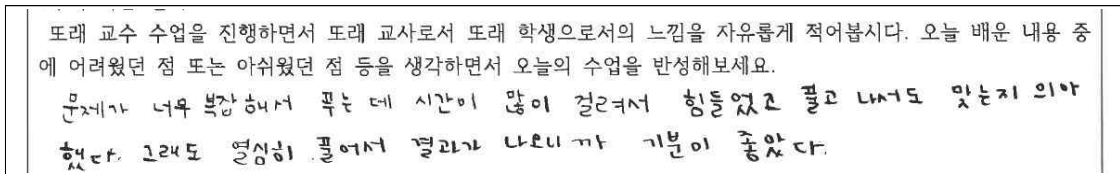 또래 교수 수업을 진행하면서 또래 교사로서 또래 학생으로서의 느낌을 자유롭게 적어봅시다. 오늘 배운 내용 중
에 어려웠던 점 또는 아쉬웠던 점 등을 생각하면서 오늘의 수업을 반성해보세요.
문제가 너무 복잡해서 푸는 데 시간이 많이 걸려서 힘들었고 풀고 나서도 맞는지 의아
했다. 그래도 열심히 풀어서 결과가 나오니까 기분이 좋았다.